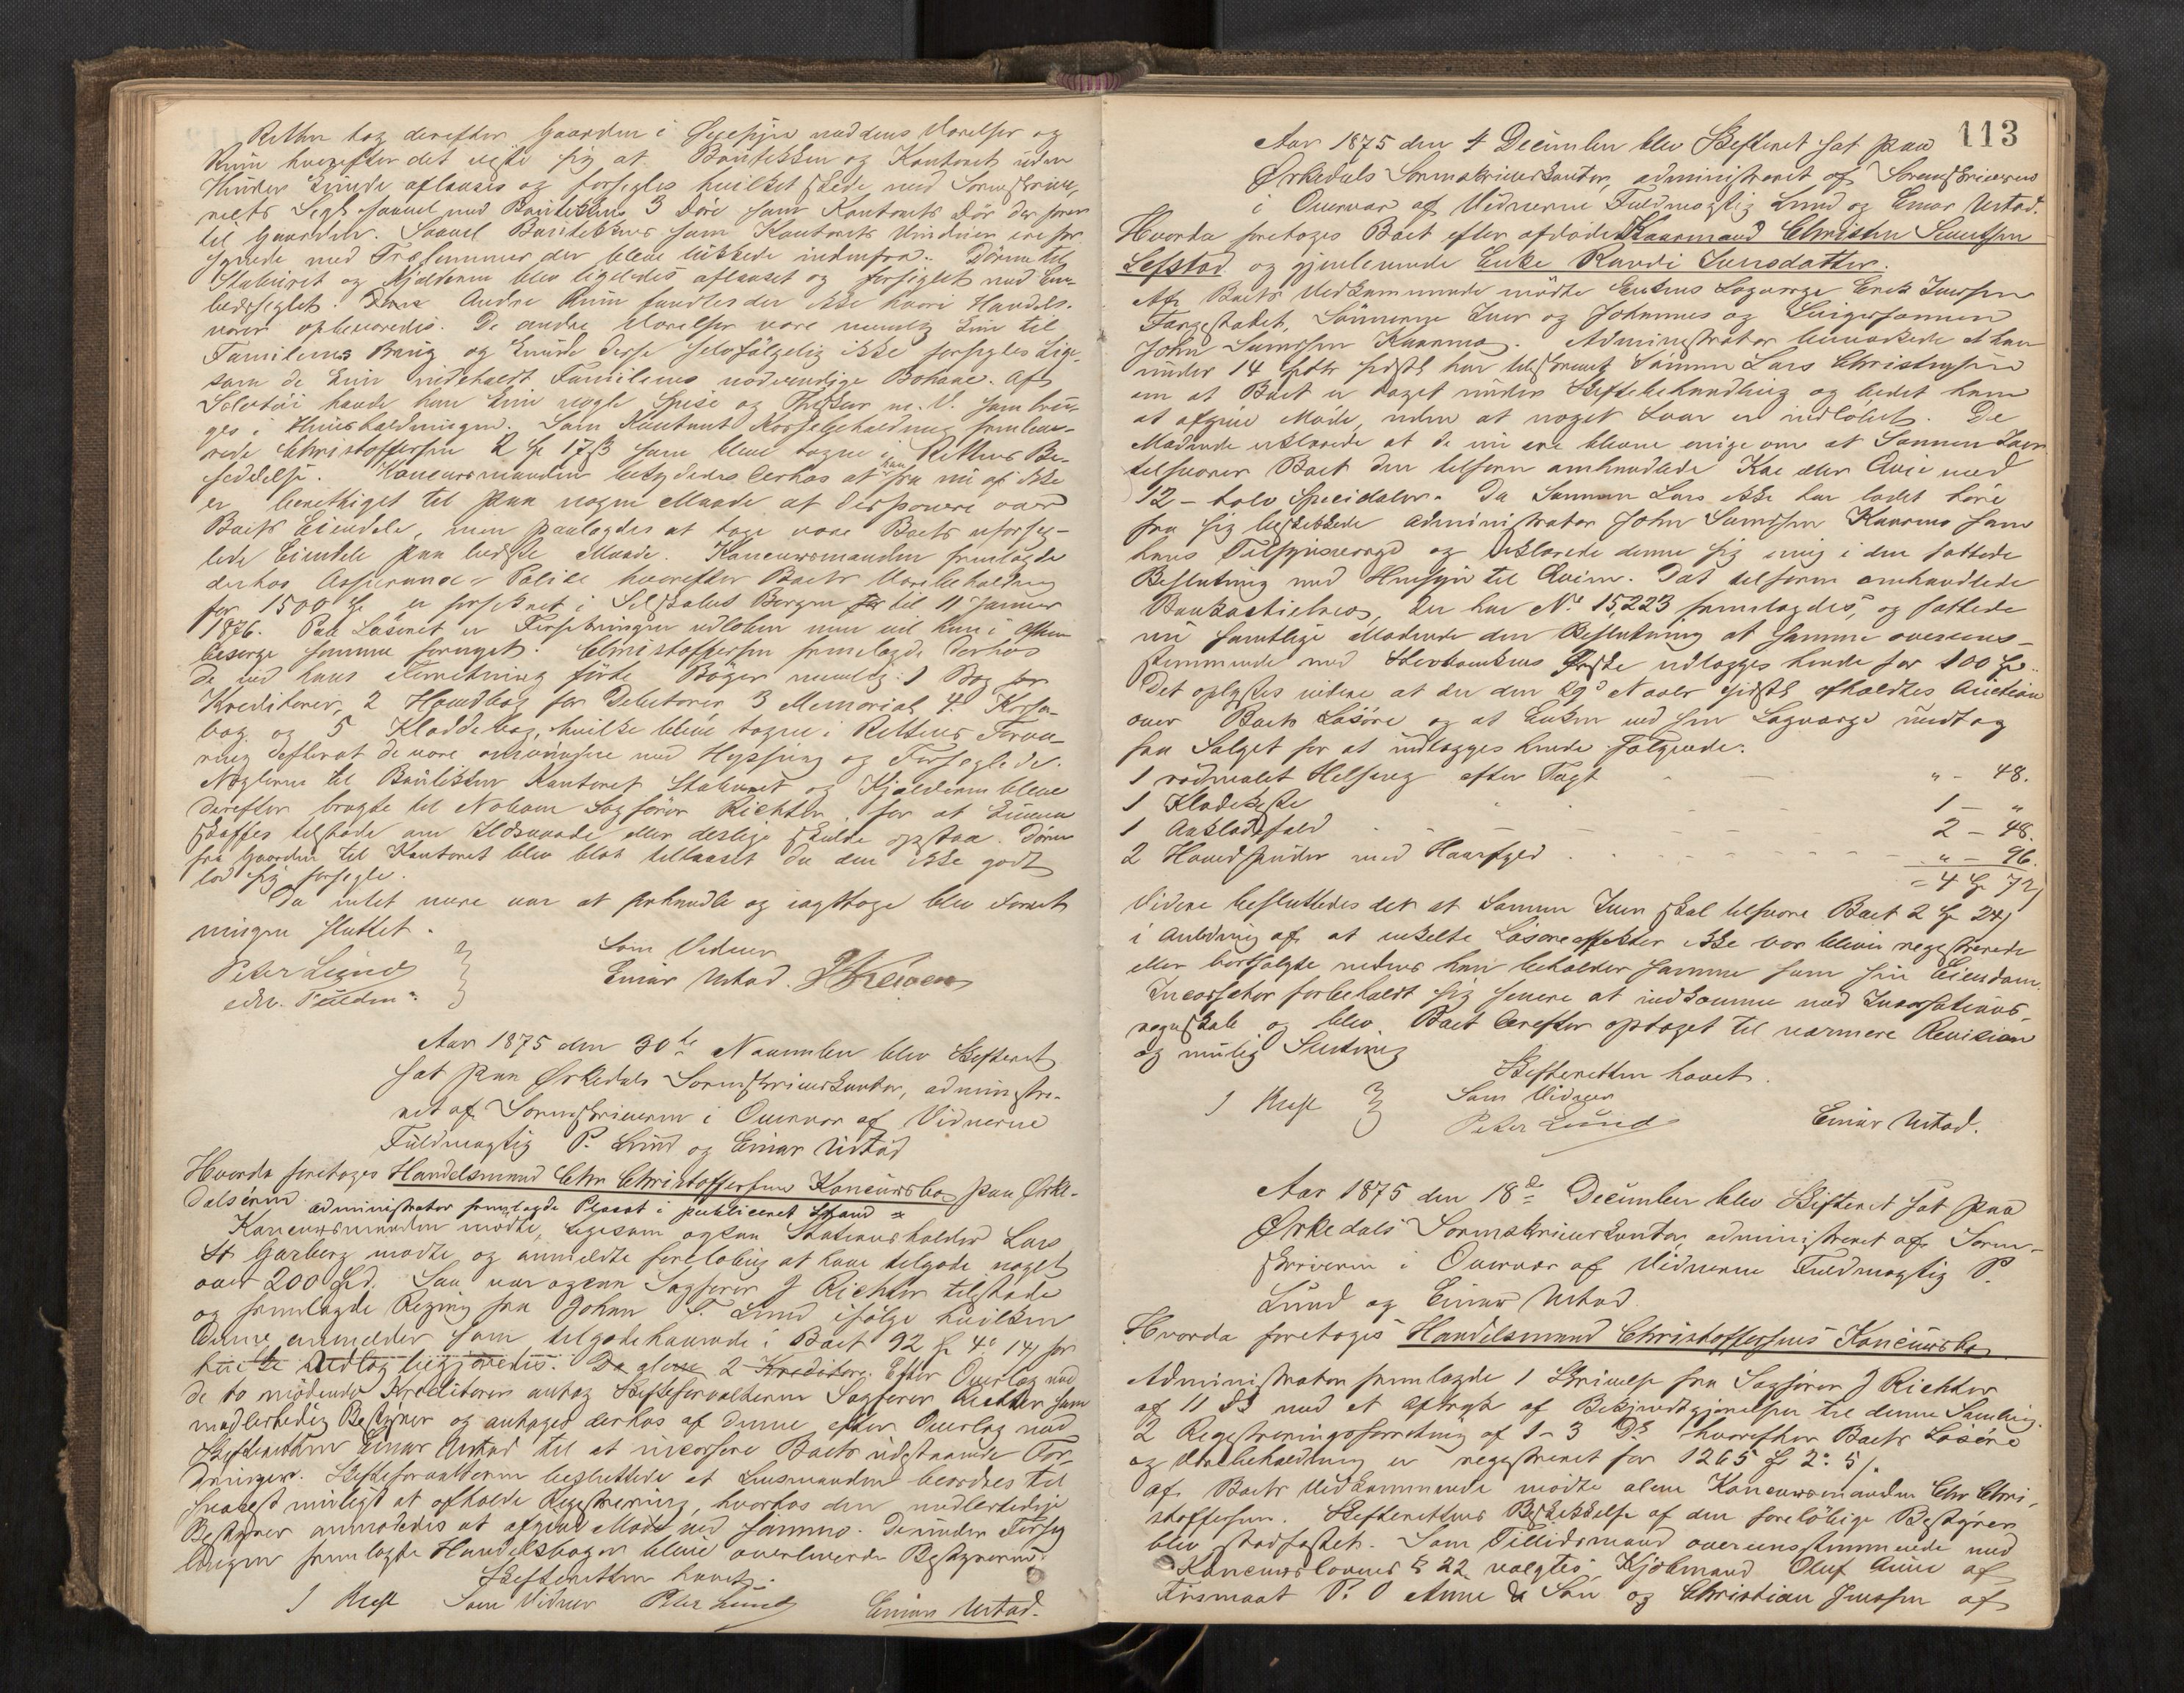 Retten tog derefter Gaarden i Øiesyn med dens Værelser og
Rum hvorefter det viste sig at Boutikken og Kontoret uden
Hinder kunde aflaases og forsegles hvilket skede med Sorenskrive-
riets Segl saavel med Boutikkens 3 Döre som Kontorets Dör der förer
til Gaarden. Saavel Boutikkens som Kontorets Vinduer ere for
synede med Trælemmer der bleve lukkede indenfra. Dörene til
Stabburet og Kjelderen blev ligeledes aflaaset og forseglet med Em-
bedsseglet. Andre Rum fandtes der ikke hvori Handels-
varer opbevaredes. De andre Værelser vare nemlig kun til
Familiens Brug og kunde disse selvfölgelig ikke forsegles lige-
som de kun indeholdt Familiens nödvendige Bohave. Af
Sölvtöi havde han kun nogle Spise og Theskeer m. V. som bru-
ges i Huusholdningen. Som Kontant Kassebeholdning fremleve-
rede Christoffersen 2 Sp 17 ß som bleve tagne i Rettens Be-
siddelse. Koncursmanden betydedes derhos at han fra nu af ikke
er berettiget til paa nogen Maade at disponere over
Boets Eiendele, men paalagdes at tage vare Boets uforseg-
lede Eiendele paa bedste Maade. Koncursmanden fremlagde
derhos Assurance-Police hvorefter Boets Varebeholdning
for 1500 Sp er forsikret i Selskabet Bergen til 11 Januar
1876. Paa Lösöret er Forsikringen udlöben men vil han i Aften
besörge samme fornyet. Christoffersen fremlagde derhos
de ved hans Forretning förte Böger nemlig: 1 Bog for
Kreditorer, 2 Hovedbog for Debitorer 3 Memorial 4. Kasse-
bog og 5 Kladdebog, hvilke bleve tagne i Rettens Forva-
ring efterat de vare omvundne med Hyssing og Forseglede.
Nöglerne til Boutikken Kontoret Stabburet og Kjelderen bleve
derefter bragte til Naboen Sagförer Richter for at kunne
skaffes tilstede om Ildsvaade eller deslige skulde opstaa. Dören
fra Gaarden til Kontoret blev blot tillaaset da den ikke godt
lod sig forsegle.
Da intet mere var at forhandle og iagttage blev Forret-
ningen sluttet.
Som Vidner
Peter Lund
Einar Ustad.
Aar 1875 den 30te November blev Skifteret
sat paa Ørkedals Sorenskriverkontor, administre-
ret af Sorenskriveren i Overvær af Vidnerne
Fuldmægtig P. Lund og Einar Ustad
Hvorda foretoges Handelsmand Chr Christoffersens Koncursbo paa Ørke-
dalsören administrator fremlagde Placat i publiceret Stand
Koncursmanden mödte, ligesom ogsaa Stationsholder Lars
Garberg mödte og anmeldte foreløbig at have tilgode noget
over 200 Spd. Saa var ogsaa Sagförer J Richter tilstede
og fremlagde Regning fra Johan F Lund ifölge hvilken
denne anmelder som tilgodehavende i Boet 92 Sp 4. 14 ß for
hvilke Udlæg begjæredis. 2 Kreditorer. Efter Overlæg med
de to mödende Kreditorer antog Skifteforvalteren Sagförer Richter som
midlertidig Bestyrer og antoges derhos af denne efter Overlæg med
Skifteretten Einar Ustad til at incassere Boets udestaaende For-
dringer. Skifteforvalteren besluttede at Lensmanden beordres til
snarest muligt at afholde Registrering, hvorhos den midlertidige
Bestyrer anmodedes at afgive Möde ved samme. De under Forseg
lingen fremlagte Handelsböger bleve overleverede Bestyreren.
Skifteretten hævet.
J Kref Som Vidner Peter Lund Einar Ustad.
113
Aar 1875 den 4 December blev Skifteret sat paa
Ørkedals Sorenskriverkontor, administreret af Sorenskriveren
i Overvær af Vidnerne Fuldmægtig Lund og Einar Ustad.
Hvorda foretoges Boet efter afdöde Kaarmand Christen Sivertsen
Lefstad og gjenlevende Enke Randi Iversdatter.
Af Boets Vedkommende mödte Enkens Laugværge Erik Iversen
Fargestabet, Sönnerne Iver og Johannes og Svigersönnen
John Kaarmo. Administrator bemærkede at han
under 14 Sptbr sidstl har tilskrevet Sönnen Lars Christensen
om at Boet er taget under Skiftebehandling og bedet ham
at afgive Möde, uden at noget Svar er indlöbet. De
Mödende erklærede at de nu ere blevne enige om at Sönnen Iver
tilsvarer Boet den tilforn omhandlede Koe eller Qvie med
12 - tolv Speciedaler. Da Sönnen Lars ikke har ladet höre
fra sig beskikkede Administrator John Kaarmo som
hans Tilsynsværge og erklærede denne sig enig i den fattede
Beslutning med Hensyn til Qvien. Det tilforn omhandlede
Bankactiebrev, der har No 15,223 fremlagdes, og fattede
nu samtlige Mödende den Beslutning at samme overens-
stemmende med Stervboenkens Ønske udlægges hende for 100 Spd.
Det oplystes videre at der den 29de Novbr sidstl afholdtes Auction
over Boets Lösöre og at Enken ved sin Laugværge undtog
fra Salget for at udlægges hende Fölgende:
1 rödmalet Helseng efter Tagt " - 48.
1 Klædekiste 1 - "
1 Aaklædsfeld 2 - 48.
2 Hovedpuder med Haarfyld " - 96.
= 4 Sp 72 ß
Videre besluttedes det at Sönnen Iver skal tilsvare Boet 2 Sp 24 ß
i Anledning af at enkelte Lösöreeffekter ikke var blevne registrerede
eller bortsolgte medens han beholder samme som sin Eiendom.
Incassator forbeholdt sig senere at indkomme med Incassations-
regnskab og blev Boet derefter optaget til nærmere Revision
og mulig Slutning
Skifteretten hævet.
J Kref Som Vidner
Peter Lund Einar Ustad.
Aar 1875 den 18de December blev Skifteret sat paa
Ørkedals Sorenskriverkontor, administreret af Soren-
skriveren i Overvær af Vidnerne Fuldmægtig P.
Lund og Einar Ustad
Hvorda foretoges Handelsmand Christoffersens Koncursbo
Administrator fremlagde 1 Skrivelse fra Sagförer J Richter
af 11 ds med et Aftryk af Bekjendtgjörelsen til denne Samling.
2 Registreringsforretning af 1-3 Ds hvorefter Boets Lösöre
og Varebeholdning er registreret for 1265 Sp 2. 5 ß.
Af Boets Vedkommende mödte alene Koncursmanden Chr Chri-
stoffersen. Skifterettens Beskikkelse af den forelöbige Bestyrer
blev stadfæstet. Som Tillidsmænd overeensstemmende med
Koncurslovens § 22 valgtes, Kjöbmand Oluf Aune af
Firmaet P. O Aune & Sön og Christian Jenssen af